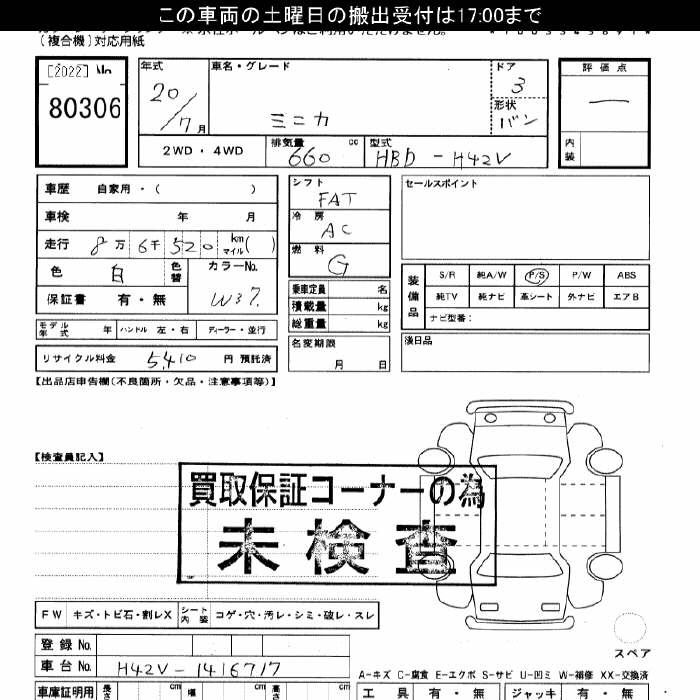 この車両の土曜日の搬出受付は17:00まで
(複合機)対応用紙
[2022] No
80306
年式
20/7月
車名・グレード
ミニカ
ドア
3
形状
バン
評価点
—
内装
2WD・4WD
排気量
660 cc
型式
HBD-H42V
車歴 自家用・( )
車検 年 月
走行 8万6千520 km マイル( )
色 白 色替
カラーNo. W37.
保証書 有・無
シフト
FAT
冷房
AC
燃料
G
乗車定員 名
積載量 kg
総重量 kg
名変期限
月 日
セールスポイント
装備品
S/R 純A/W P/S P/W ABS
純TV 純ナビ 革シート 外ナビ エアB
ナビ型番:
モデル年式 年 ハンドル 左・右 ディーラー・並行
リサイクル料金 5,410 円 預託済
漢日品
【出品店申告欄(不良箇所・欠品・注意事項等)】
【検査員記入】
買取保証コーナーの為
未検査
FW キズ・トビ石・割レX シート内装 コゲ・穴・汚レ・シミ・破レ・スレ
スペア
登録No.
車台No. H42V-1416717
A-キズ C-腐食 E-エクボ S-サビ U-凹ミ W-補修 XX-交換済
車庫証明用 長さ cm 幅 cm 高さ cm
工具 有・無 ジャッキ 有・無